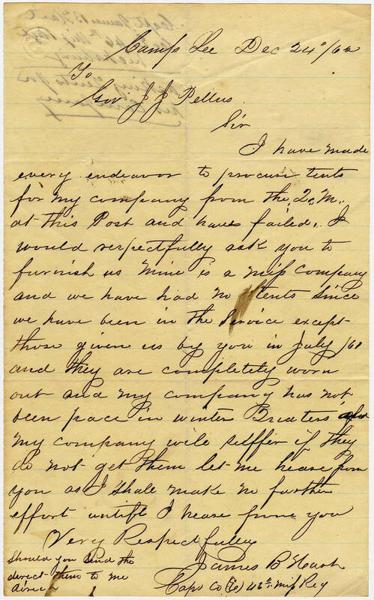 Camp Lee Dec 24th/62
To
Gov. J J Pettus
Sir
I have made
every endeavor to procure tents
for my company from the Q. M.
at this Post and have failed. I
would respectfully ask you to
furnish us Mine is a miss company
and we have had no tents since
we have been in the Service except
those given us by you in July /61
and they are completely worn
out and my company has not
been place in winter Quaters and
my company wile selffer if they
do not get them let me heare from
you as I shale make no further
effort untill I heare from you
Very Respectfully
James B
Capt Co 46th Miss Reg
should you send the
direct them to me